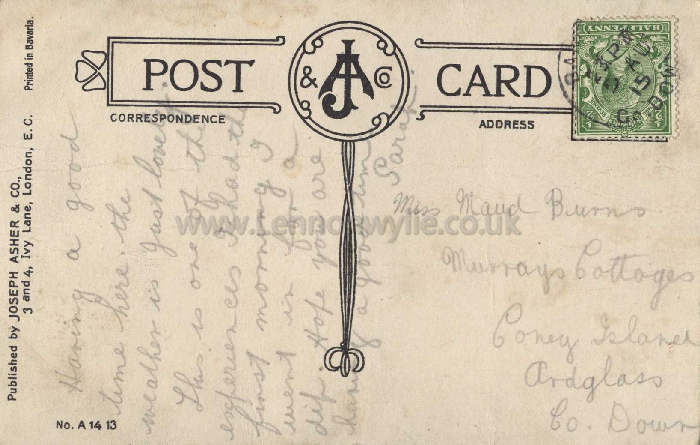 POST & JA Co CARD
CORRESPONDENCE
ADDRESS
HALFPENNY
15
Co. DOWN
Printed in Bavaria.
Published by JOSEPH ASHER & CO.,
3 and 4, Ivy Lane, London, E. C.
No. A 14 13
Having a good
time here. the
weather is just lovely.
This is one of the
experiences I had the
first morning I
went in for a
dip. Hope you are
having a good time
Sarah
Miss Maud Burns
Murrays Cottages
Coney Island
Ardglass
Co. Down
www.Lennonwylie.co.uk